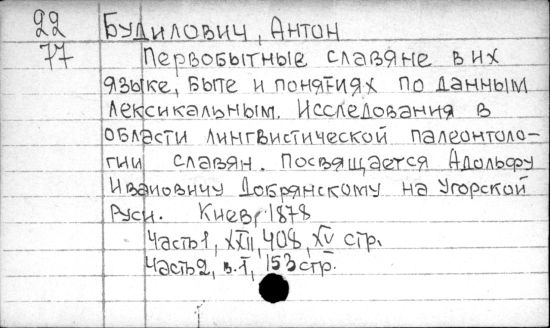 22 Будилович, Антон
77 Первобытные славяне в их
языке, быте и понятиях по данным
лексикальным. Исследования в
области лингвистической палеонтоло-
гии славян. Посвящается Адольфу
Ивановичу Добрянскому на Угорской
Руси. Киев, 1878
Часть 1, XXII, 408, XV стр.
Часть 2, в. I, 153 стр.